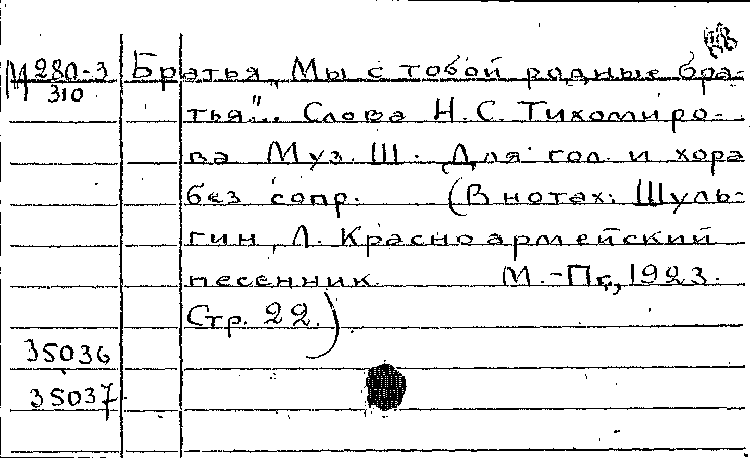 М 280-3 Братья „Мы с тобой родные бра-
310
тья"... Слова Н.С. Тихомиро-
ва Муз. Ш. Для гол. и хора
без сопр. (В нотах: Шуль-
гин, Л. Красноармейский
песенник. М.-Пг., 1923.
Стр. 22.)
35036
35037